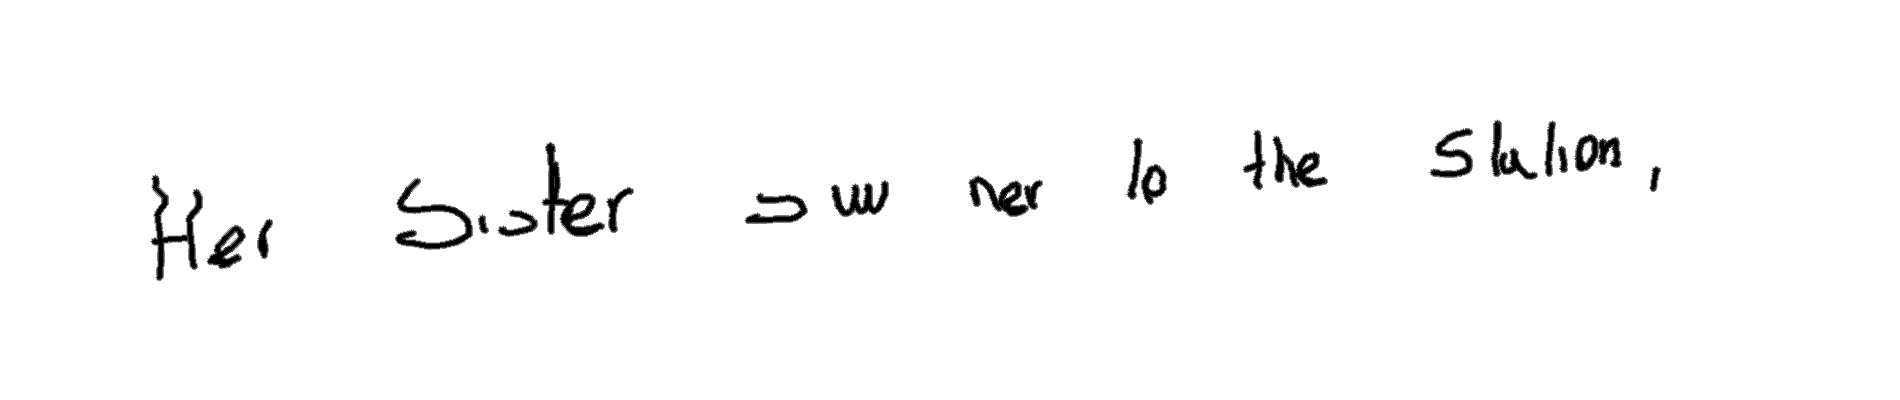 Her Sister saw her to the station,